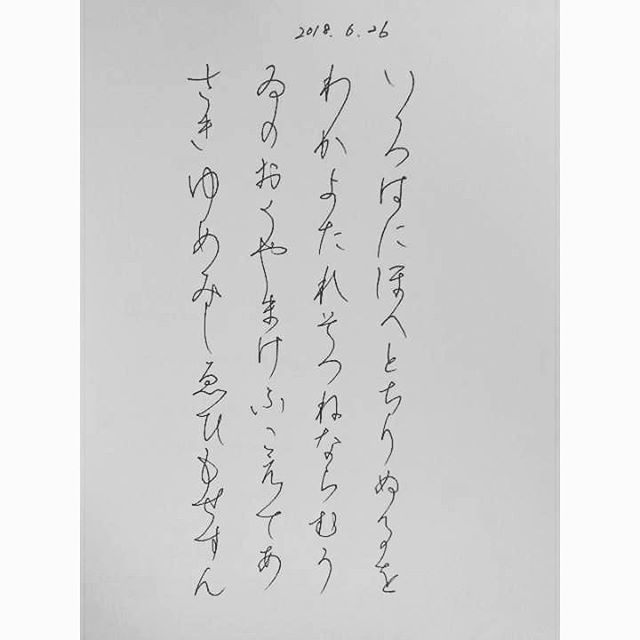 2018.6.26
いろはにほへとちりぬるを
わかよたれそつねならむう
ゐのおくやまけふこえてあ
さきゆめみしゑひもせすん